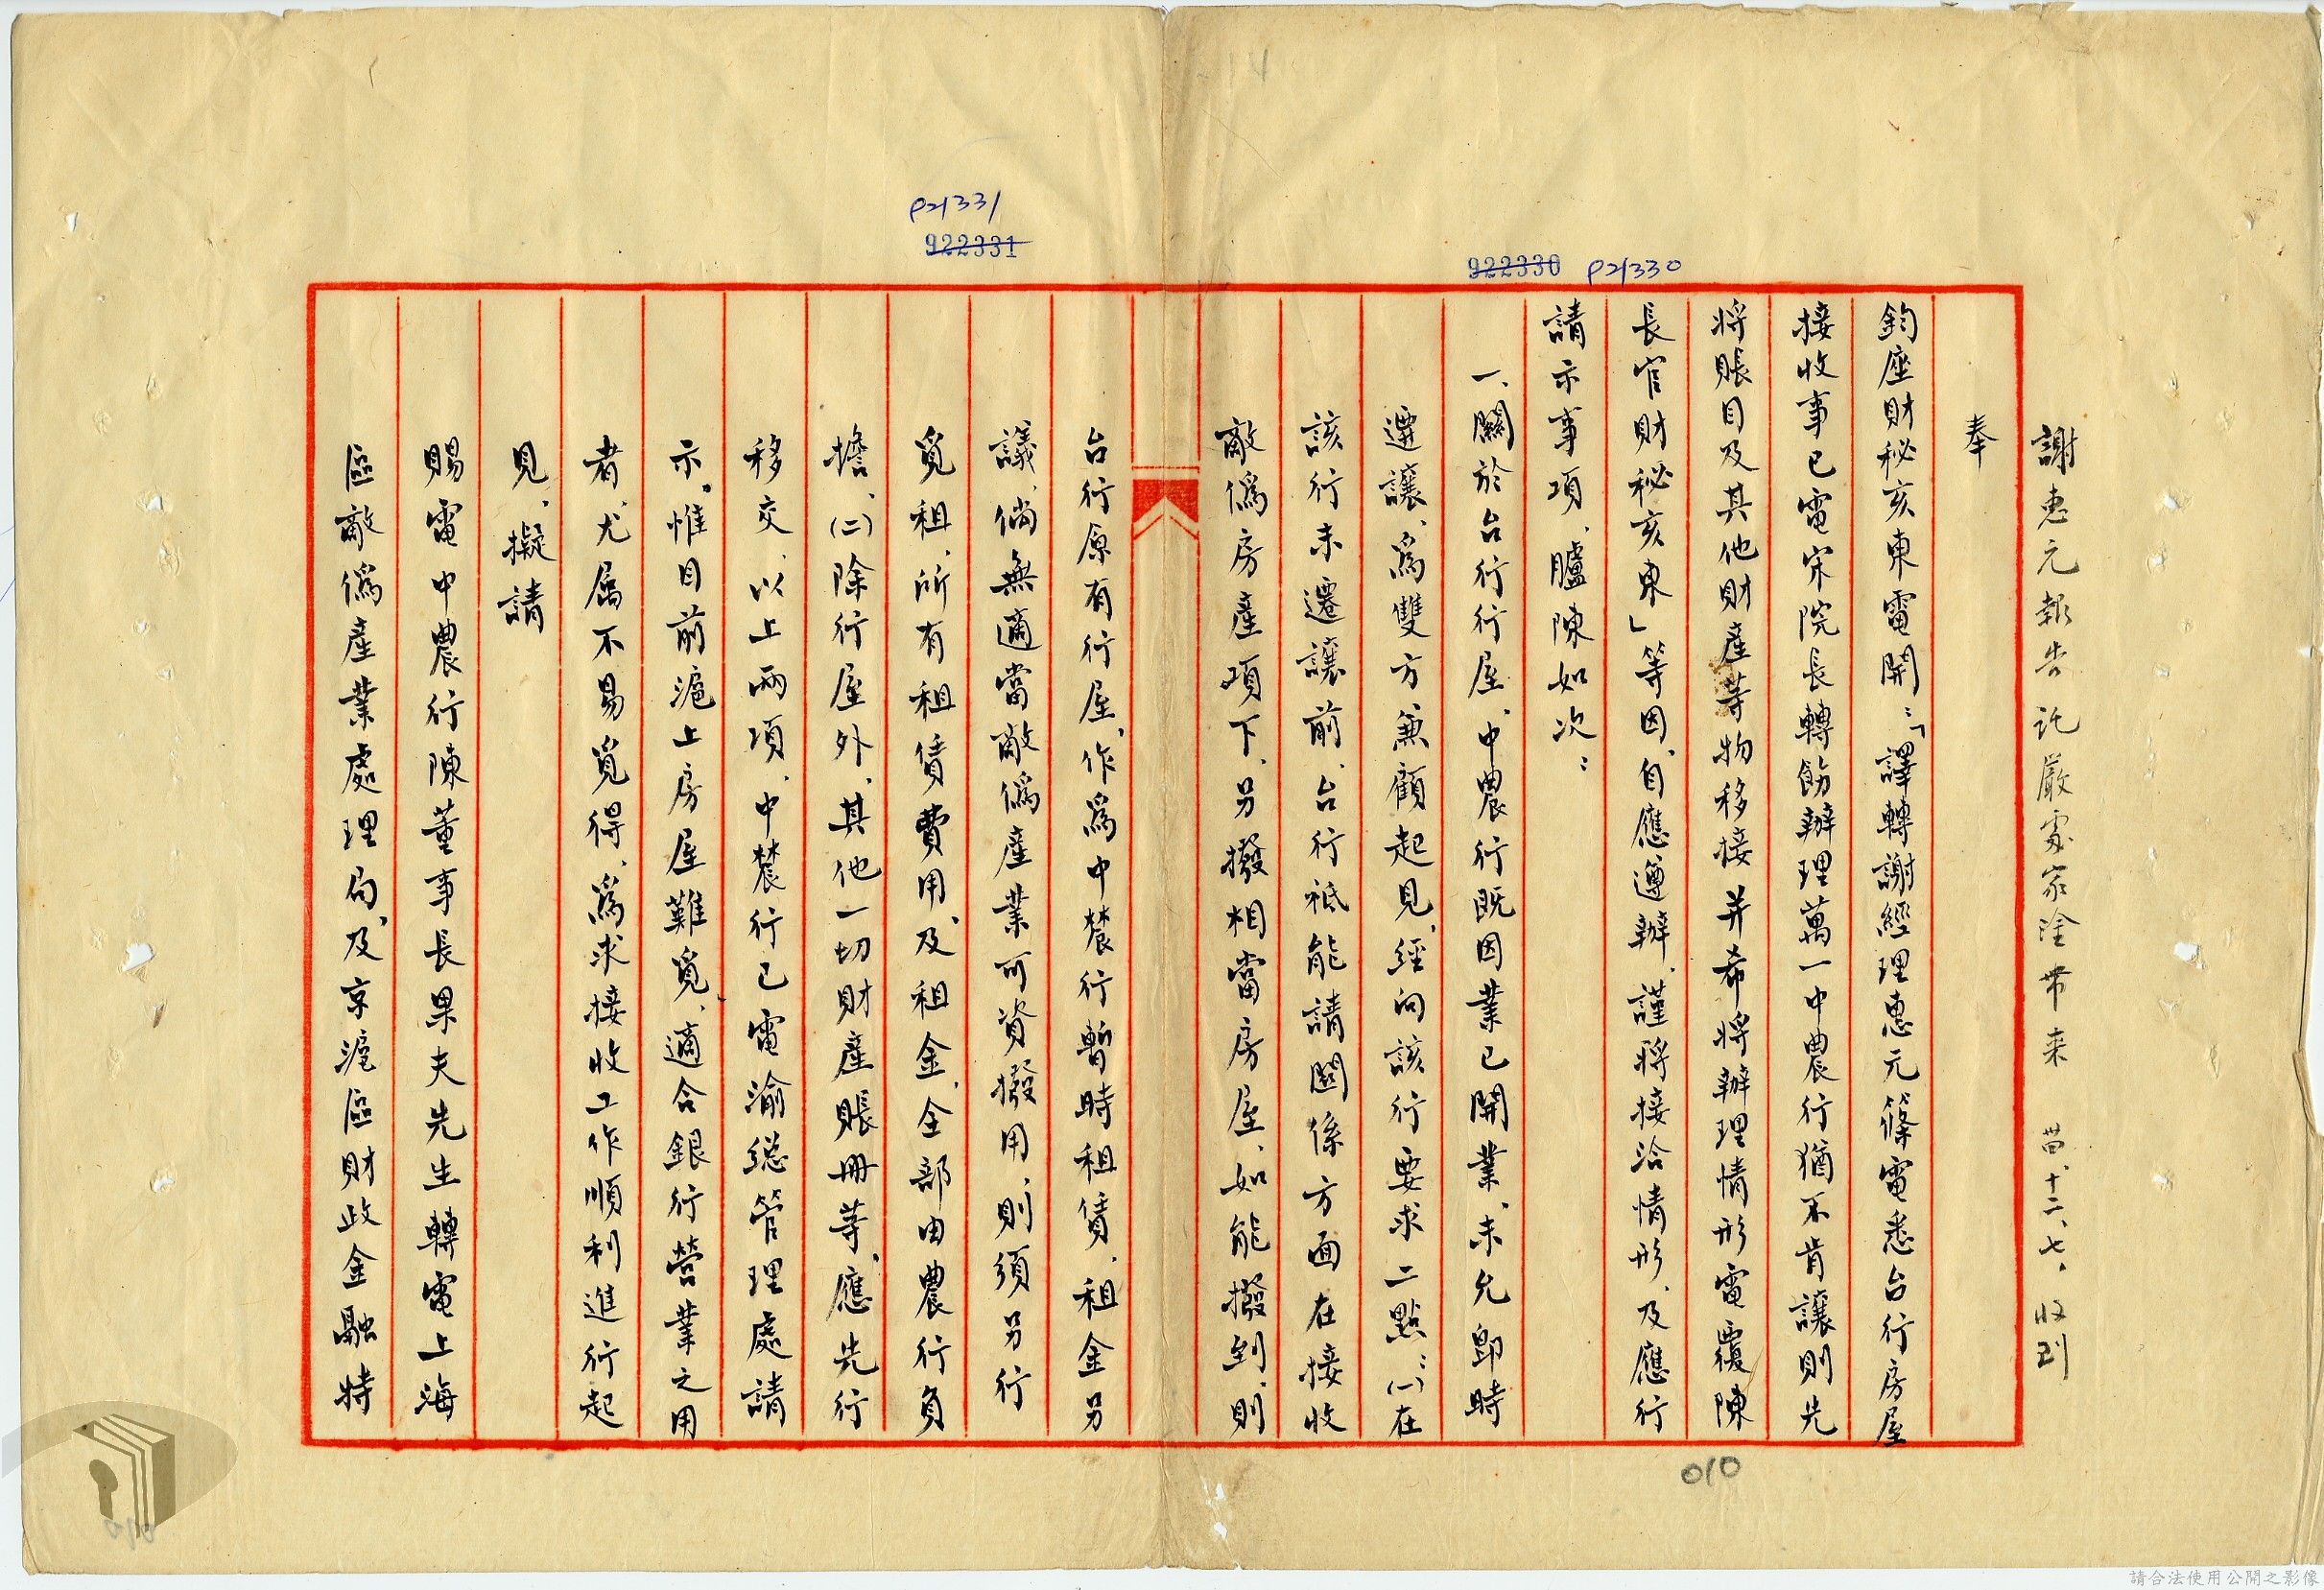 謝惠元報告託嚴處家淦帶来 卅四、十二、七、收到
922330 P21330
奉
鈞座財秘亥東電開：「譯轉謝經理惠元篠電悉台行房屋
接收事已電宋院長轉飭辦理萬一中農行猶不肯讓則先
將賬目及其他財產等物移接并希將辦理情形電覆陳
長官財秘亥東」等因、自應遵辦、謹將接洽情形、及應行
請示事項、臚陳如次：
一、關於台行行屋、中農行既因業已開業、未允即時
遷讓、爲雙方兼顧起見、經向該行要求二點：㈠在
該行未遷讓前、台行祗能請關係方面在接收
敵僞房產項下、另撥相當房屋、如能撥到、則
922331 P21331
台行原有行屋、作爲中農行暫時租賃、租金另
議、倘無適當敵僞產業可資撥用、則須另行
覓租、所有租賃費用、及租金、全部由農行負
擔、㈡除行屋外、其他一切財產賬冊等、應先行
移交、以上兩項、中農行已電渝總管理處請
示。惟目前滬上房屋難覓、適合銀行營業之用
者、尤屬不易覓得、爲求接收工作順利進行起
見、擬請
賜電中農行陳董事長果夫先生轉電上海
區敵僞產業處理局、及京滬區財政金融特
010
請合法使用公開之影像